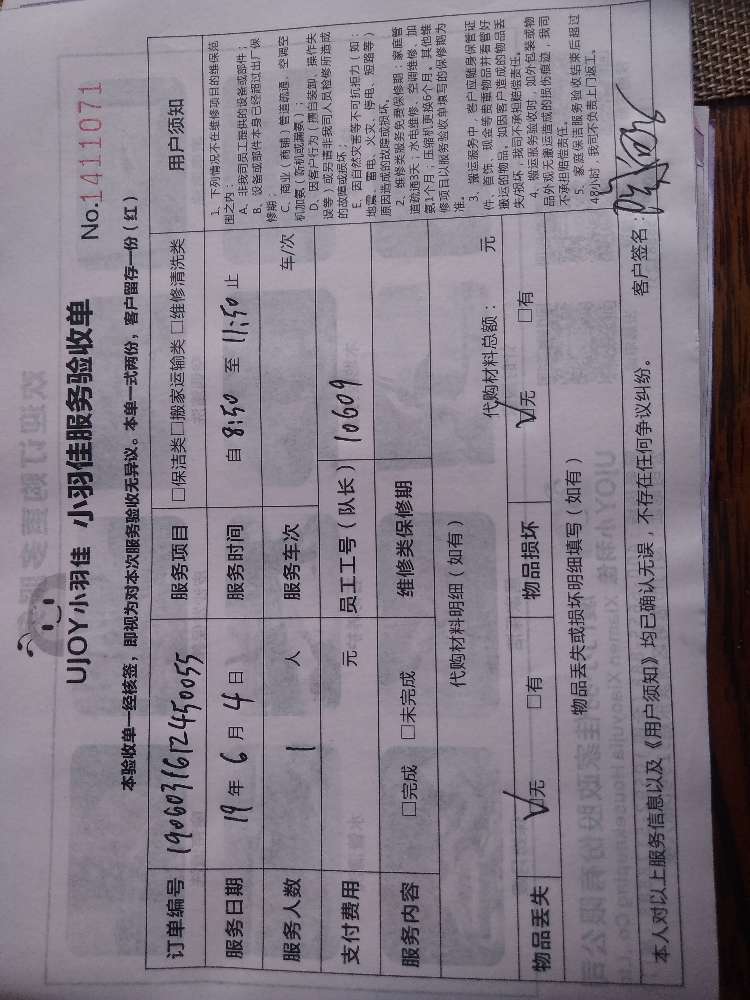 UJOY小羽佳 小羽佳服务验收单
No:1411071
本验收单一经核签，即视为对本次服务验收无异议。本单一式两份，客户留存一份（红）
订单编号 1906031612450055 服务项目 □保洁类□搬家运输类 □维修清洗类
服务日期 19年6月4日 服务时间 自 8:50 至 11:50 止
服务人数 1 人 服务车次 车/次
支付费用 元 员工工号（队长） 10609
服务内容 □完成 □未完成 维修类保修期
代购材料明细（如有） 代购材料总额： 元
物品丢失 ☑无 □有 物品损坏 ☑无 □有
物品丢失或损坏明细填写（如有）
用户须知
1. 下列情况不在维修项目的维保范
围之内：
A、非我司员工提供的设备或部件；
B、设备或部件本身已经超过出厂保
修期；
C、商业（商铺）管道疏通、空调空
机加氨（新机或漏氨）；
D、因客户行为（擅自装卸、操作失
误等）或另请非我司人员检修所造成
的故障或损坏；
E、因自然灾害等不可抗拒力（如：
地震、雷电、火灾、停电、短路等）
原因造成的故障或损坏。
2、维修类服务免费保修期：家庭管
道疏通3天；水电维修、空调维修、加
氨1个月；压缩机更换6个月。其他维
修项目以服务验收单填写的保修期为
准。
3、搬运服务中，客户应随身保管证
件、首饰、现金等贵重物品并看管好
搬运的物品。如因客户造成的物品丢
失/损坏，我司不承担赔偿责任。
4、搬运服务验收时，如外包装或物
品外观无搬运造成的损伤痕迹，我司
不承担赔偿责任。
5、家庭保洁服务验收结束后超过
48小时，我司不负责上门返工。
本人对以上服务信息以及《用户须知》均已确认无误，不存在任何争议纠纷。 客户签名：